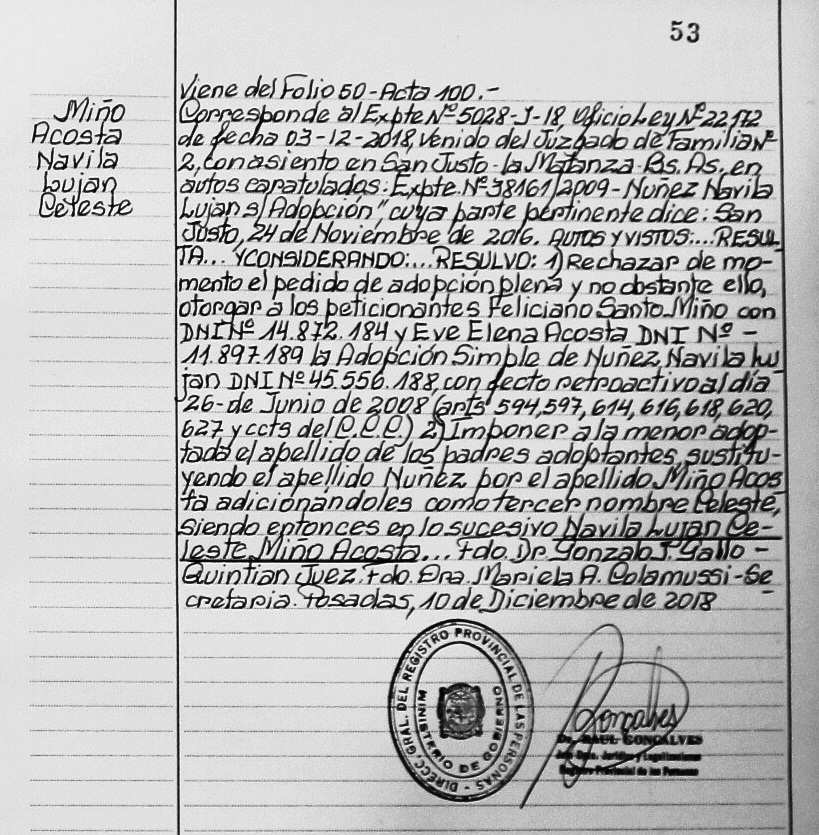 53
Miño
Acosta
Navila
Lujan
Celeste
Viene del Folio 50-Acta 100.-
Corresponde al Expte Nº 5028-J-18 Oficio Ley Nº 22172
de fecha 03-12-2018, venido del Juzgado de Familia Nº
2, con asiento en San Justo-la Matanza-Bs. As. en
autos caratulados: Expte. Nº 38161/2009-Nuñez Navila
Lujan s/Adopción" cuya parte pertinente dice: San
Justo, 24 de Noviembre de 2016. AUTOS Y VISTOS:...RESUL
TA... YCONSIDERANDO:...RESULVO: 1) Rechazar de mo-
mento el pedido de adopción plena y no obstante ello,
otorgar a los peticionantes Feliciano Santo Miño con
DNI Nº 14.872.184 y Eve Elena Acosta DNI Nº -
11.897.189 la Adopción Simple de Nuñez, Navila Lu
jan DNI Nº 45.556.188, con fecto retroactivo al día
26-de Junio de 2008 (arts 594,597,614,616,618,620,
627 y ccts del C.C.C.) 2) Imponer a la menor adop-
tada el apellido de los padres adoptantes, sustitu-
yendo el apellido Nuñez por el apellido Miño Acos
ta adicionándoles como tercer nombre Celeste,
siendo entonces en lo sucesivo Navila Lujan Ce-
leste Miño Acosta... Fdo. Dr. Gonzalo J. Gallo -
Quintian Juez. Fdo. Dra. Mariela A. Colamussi-Se
cretaria. Posadas, 10 de Diciembre de 2018-
DIRECC. GRAL. DEL REGISTRO PROVINCIAL DE LAS PERSONAS -
MINISTERIO DE GOBIERNO
Goncalves
Dr. RAUL GONCALVES
Jurídica y Legalizaciones
Registro Provincial de las Personas